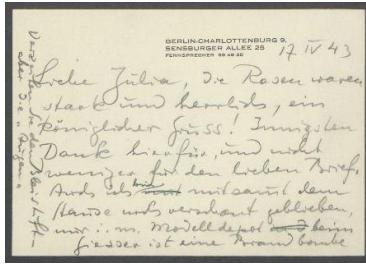 BERLIN-CHARLOTTENBURG 9,
SENSBURGER ALLEE 25
FERNSPRECHER 99 48 25
17 IV 43
Liebe Julia, die Rosen waren
stark und herrlich, ein
königlicher Gruss! Innigsten
Dank hierfür, und nicht
weniger für den lieben Brief.
Auch ich bin mitsamt dem
Hause noch verschont geblieben,
nur i. m. Modelldepot beim
Giesser ist eine Brandbombe
Verzeihen Sie den Bleistift –
aber die "Augen"